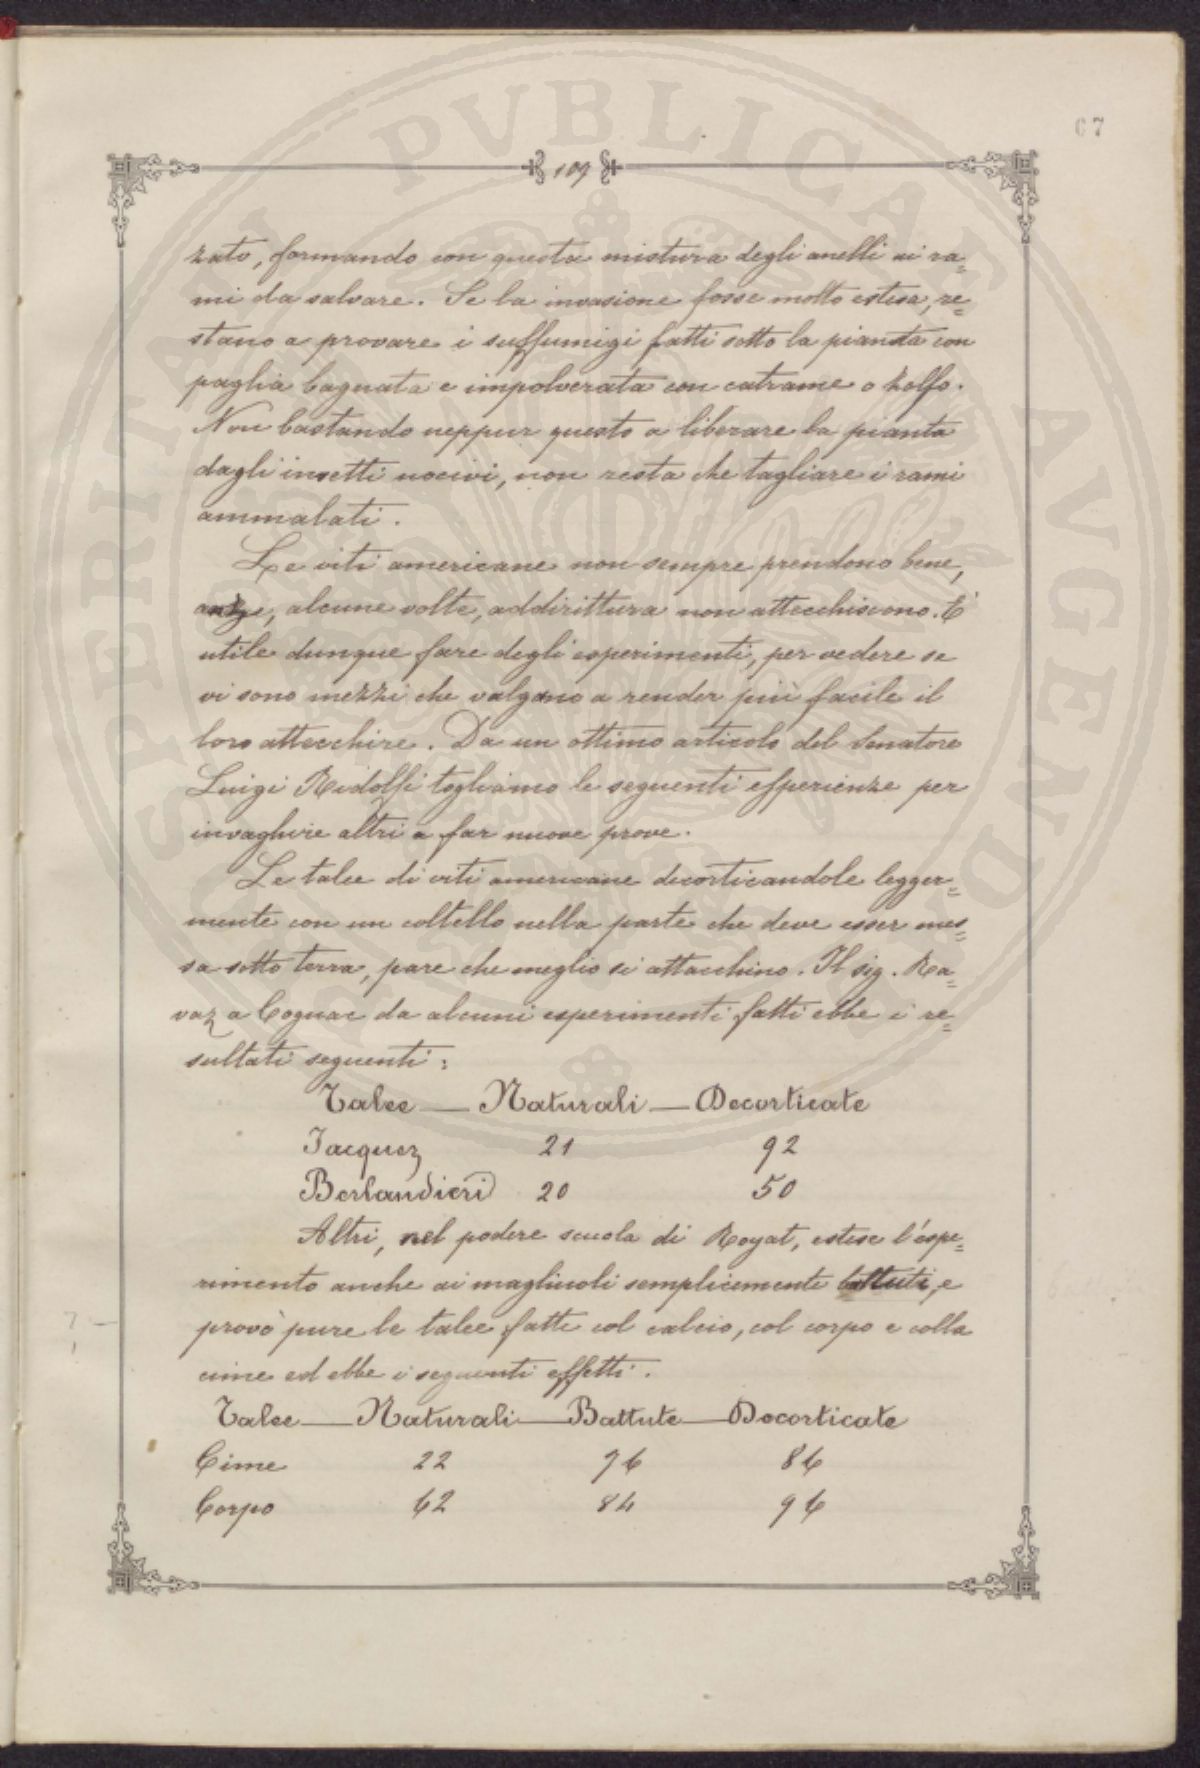 67
109
zato, formando con questa mistura degli anelli ai ra=
mi da salvare. Se la invasione fosse molto estesa, re=
stano a provare i suffumigi fatti sotto la pianta con
paglia bagnata e impolverata con catrame o zolfo.
Non bastando neppur questo a liberare la pianta
dagli insetti nocivi, non resta che tagliare i rami
ammalati.
Le viti americane non sempre prendono bene,
anzi, alcune volte, addirittura non attecchiscono. È
utile dunque fare degli esperimenti, per vedere se
vi sono mezzi che valgano a render più facile il
loro attecchire. Da un ottimo articolo del Senatore
Luigi Ridolfi togliamo le seguenti esperienze per
invaghire altri a far nuove prove.
Le talee di viti americane decorticandole legger=
mente con un coltello nella parte che deve esser mes=
sa sotto terra, pare che meglio si attacchino. Il sig. Ra=
vaz a Cognac da alcuni esperimenti fatti ebbe i re=
sultati seguenti:
Talee — Naturali — Decorticate
Jacquez 21 92
Berlandieri 20 50
Altri, nel podere scuola di Royat, estese l'espe=
rimento anche ai magliuoli semplicemente battuti, e
provò pure le talee fatte col calcio, col corpo e colla
cime ed ebbe i seguenti effetti.
Talee — Naturali — Battute — Decorticate
Cime 22 76 86
Corpo 62 84 96
PVBLICAE
AVGENDO